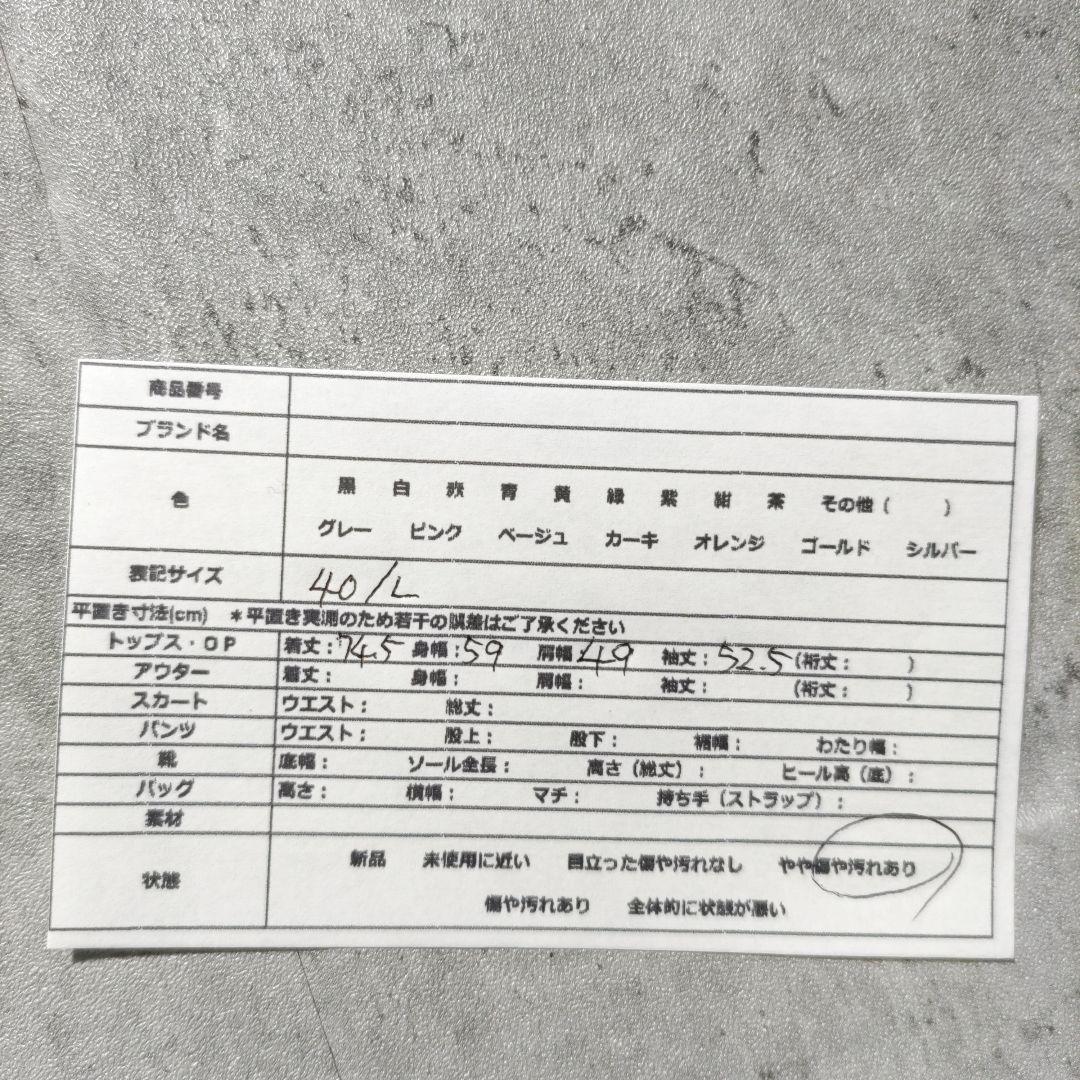 商品番号
ブランド名
色 黒 白 赤 青 黄 緑 紫 紺 茶 その他（ ）
グレー ピンク ベージュ カーキ オレンジ ゴールド シルバー
表記サイズ 40/L
平置き寸法(cm) ＊平置き実測のため若干の誤差はご了承ください
トップス・OP 着丈：74.5 身幅：59 肩幅：49 袖丈：52.5（裄丈： ）
アウター 着丈： 身幅： 肩幅： 袖丈： （裄丈： ）
スカート ウエスト： 総丈：
パンツ ウエスト： 股上： 股下： 裾幅： わたり幅：
靴 底幅： ソール全長： 高さ（総丈）： ヒール高（底）：
バッグ 高さ： 横幅： マチ： 持ち手（ストラップ）：
素材
状態 新品 未使用に近い 目立った傷や汚れなし やや傷や汚れあり
傷や汚れあり 全体的に状態が悪い